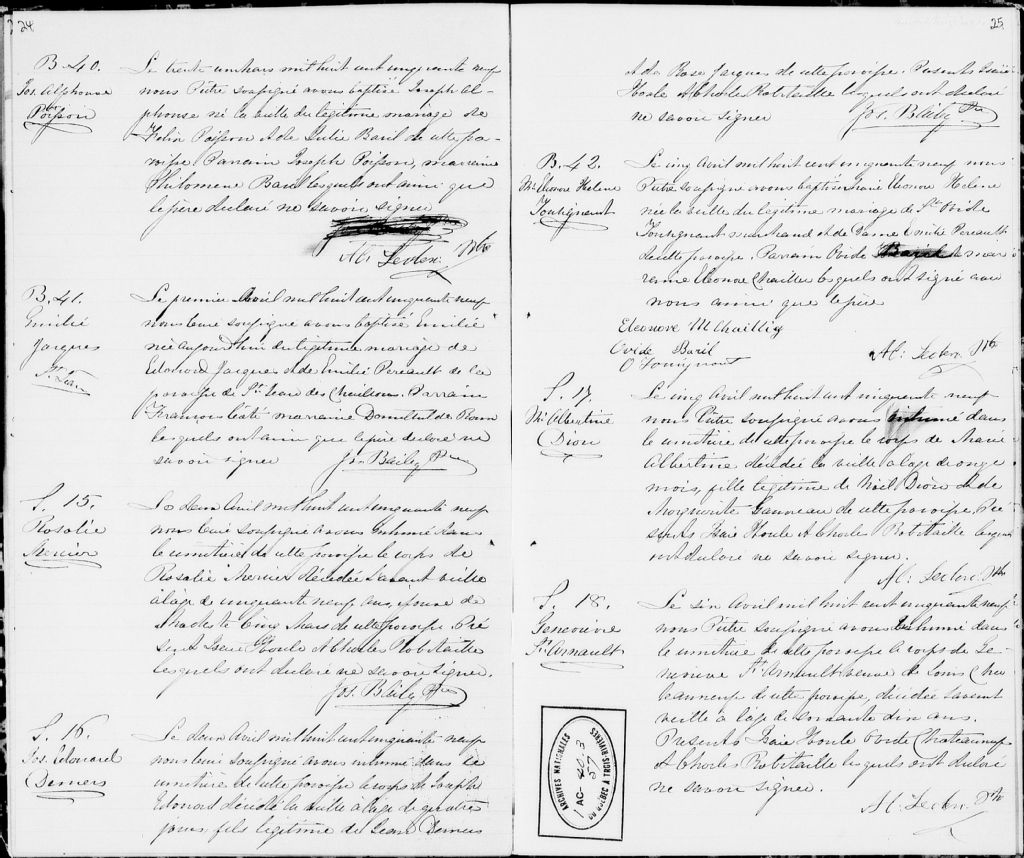 24
B. 40.
Jos. Alphonse
Poisson
Le trente un mars mil huit cent cinquante neuf
nous Prêtre soussigné avons baptisé Joseph Al-
phonse né la veille du légitime mariage de
Poisson et de Julie Baril de cette pa-
roisse. Parrain Joseph Poisson, marraine
Philomene Baril lesquels ont ainsi que
le père déclaré ne savoir signer
Ptre
B. 41.
Emilie
Jacques
Le premier Avril mil huit cent cinquante neuf
nous Curé soussigné avons baptisé Emilie
née aujourd'hui du légitime mariage de
Edouard Jacques et de Emilie Pereault de la
paroisse de St. Jean des Chaillons. Parrain
François Coté marraine
lesquels ont ainsi que le père déclaré ne
savoir signer Jos. Bailey Ptre
S. 15.
Rosalie
Mercier
Le deux Avril mil huit cent cinquante neuf
nous Curé soussigné avons inhumé dans
le cimetière de cette paroisse le corps de
Rosalie Mercier décédée l'avant veille
à l'âge de cinquante neuf ans, épouse de
de cette paroisse. Pré
sents Isaie Houle et Charles Robitaille
lesquels ont déclaré ne savoir signer.
Jos. Bailey Ptre
S. 16.
Jos. Edouard
Demers
Le deux Avril mil huit cent cinquante neuf
nous Curé soussigné avons inhumé dans le
cimetière de cette paroisse le corps de Joseph
Edouard décédé la veille à l'âge de quatre
jours, fils légitime de Jean Demers
25
et de Rose Jacques de cette paroisse. Présents Isaie
Houle et Charles Robitaille lesquels ont déclaré
ne savoir signer Jos. Bailey Ptre
B. 42.
Me. Eleonore Helene
Tourignant
Le cinq Avril mil huit cent cinquante neuf nous
Prêtre soussigné avons baptisé Marie Eleonore Helene
née la veille du légitime mariage de Sr. Ovide
Tourignant marchand et de Dame Emilie Pereault
de cette paroisse. Parrain Ovide Baril et mar
raine Eleonore Chaillez lesquels ont signé avec
nous ainsi que le père
Eleonore M Chaillez
Ovide Baril
O Tourignant
Ptre
S. 17.
Me. Albertine
Dion
Le cinq Avril mil huit cent cinquante neuf
nous Prêtre soussigné avons inhumé dans
le cimetière de cette paroisse le corps de Marie
Albertine décédée la veille à l'âge de onze
mois, fille légitime de Noël Dion et de
Marguerite Garneau de cette paroisse. Pré
sents Isaie Houle et Charles Robitaille lesquels
ont déclaré ne savoir signer.
Ptre
S. 18.
Genevieve
St. Arnault
Le six Avril mil huit cent cinquante neuf
nous Prêtre soussigné avons inhumé dans
le cimetière de cette paroisse le corps de Ge-
nevieve St. Arnault veuve de Louis Cha
teauneuf de cette paroisse, décédée l'avant
veille à l'âge de soixante dix ans.
Présents Isaie Houle Ovide Chateauneuf
et Charles Robitaille lesquels ont déclaré
ne savoir signer.
Ptre
ARCHIVES NATIONALES
1 AC- 403
57
DU QUEBEC A TROIS-RIVIERES